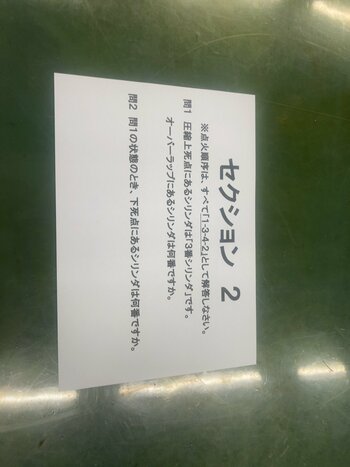 セクション 2
※点火順序は、すべて「1-3-4-2」として解答しなさい。
問1 圧縮上死点にあるシリンダは「3番シリンダ」です。
オーバーラップにあるシリンダは何番ですか。
問2 問1の状態のとき、下死点にあるシリンダは何番ですか。